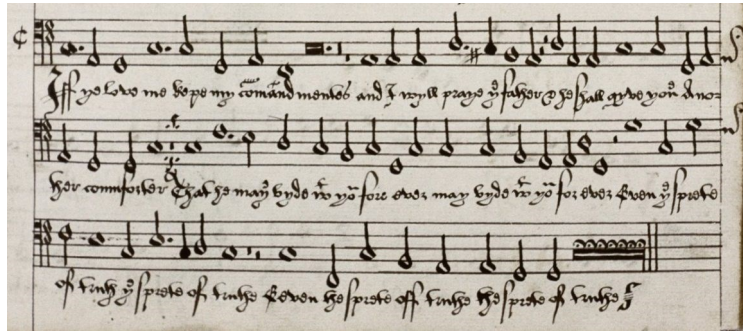 Iff ye love me kepe my comandmentes and I wyll praye yͤ father & he shall gyve yoᵘ Anor
her commforter That he may byde wᵗ yoᵘ for ever may byde wᵗ yoᵘ for ever Even yͤ sprete
off truth yͤ sprete of truthe Eeven the sprete off truthe the sprete of truthe